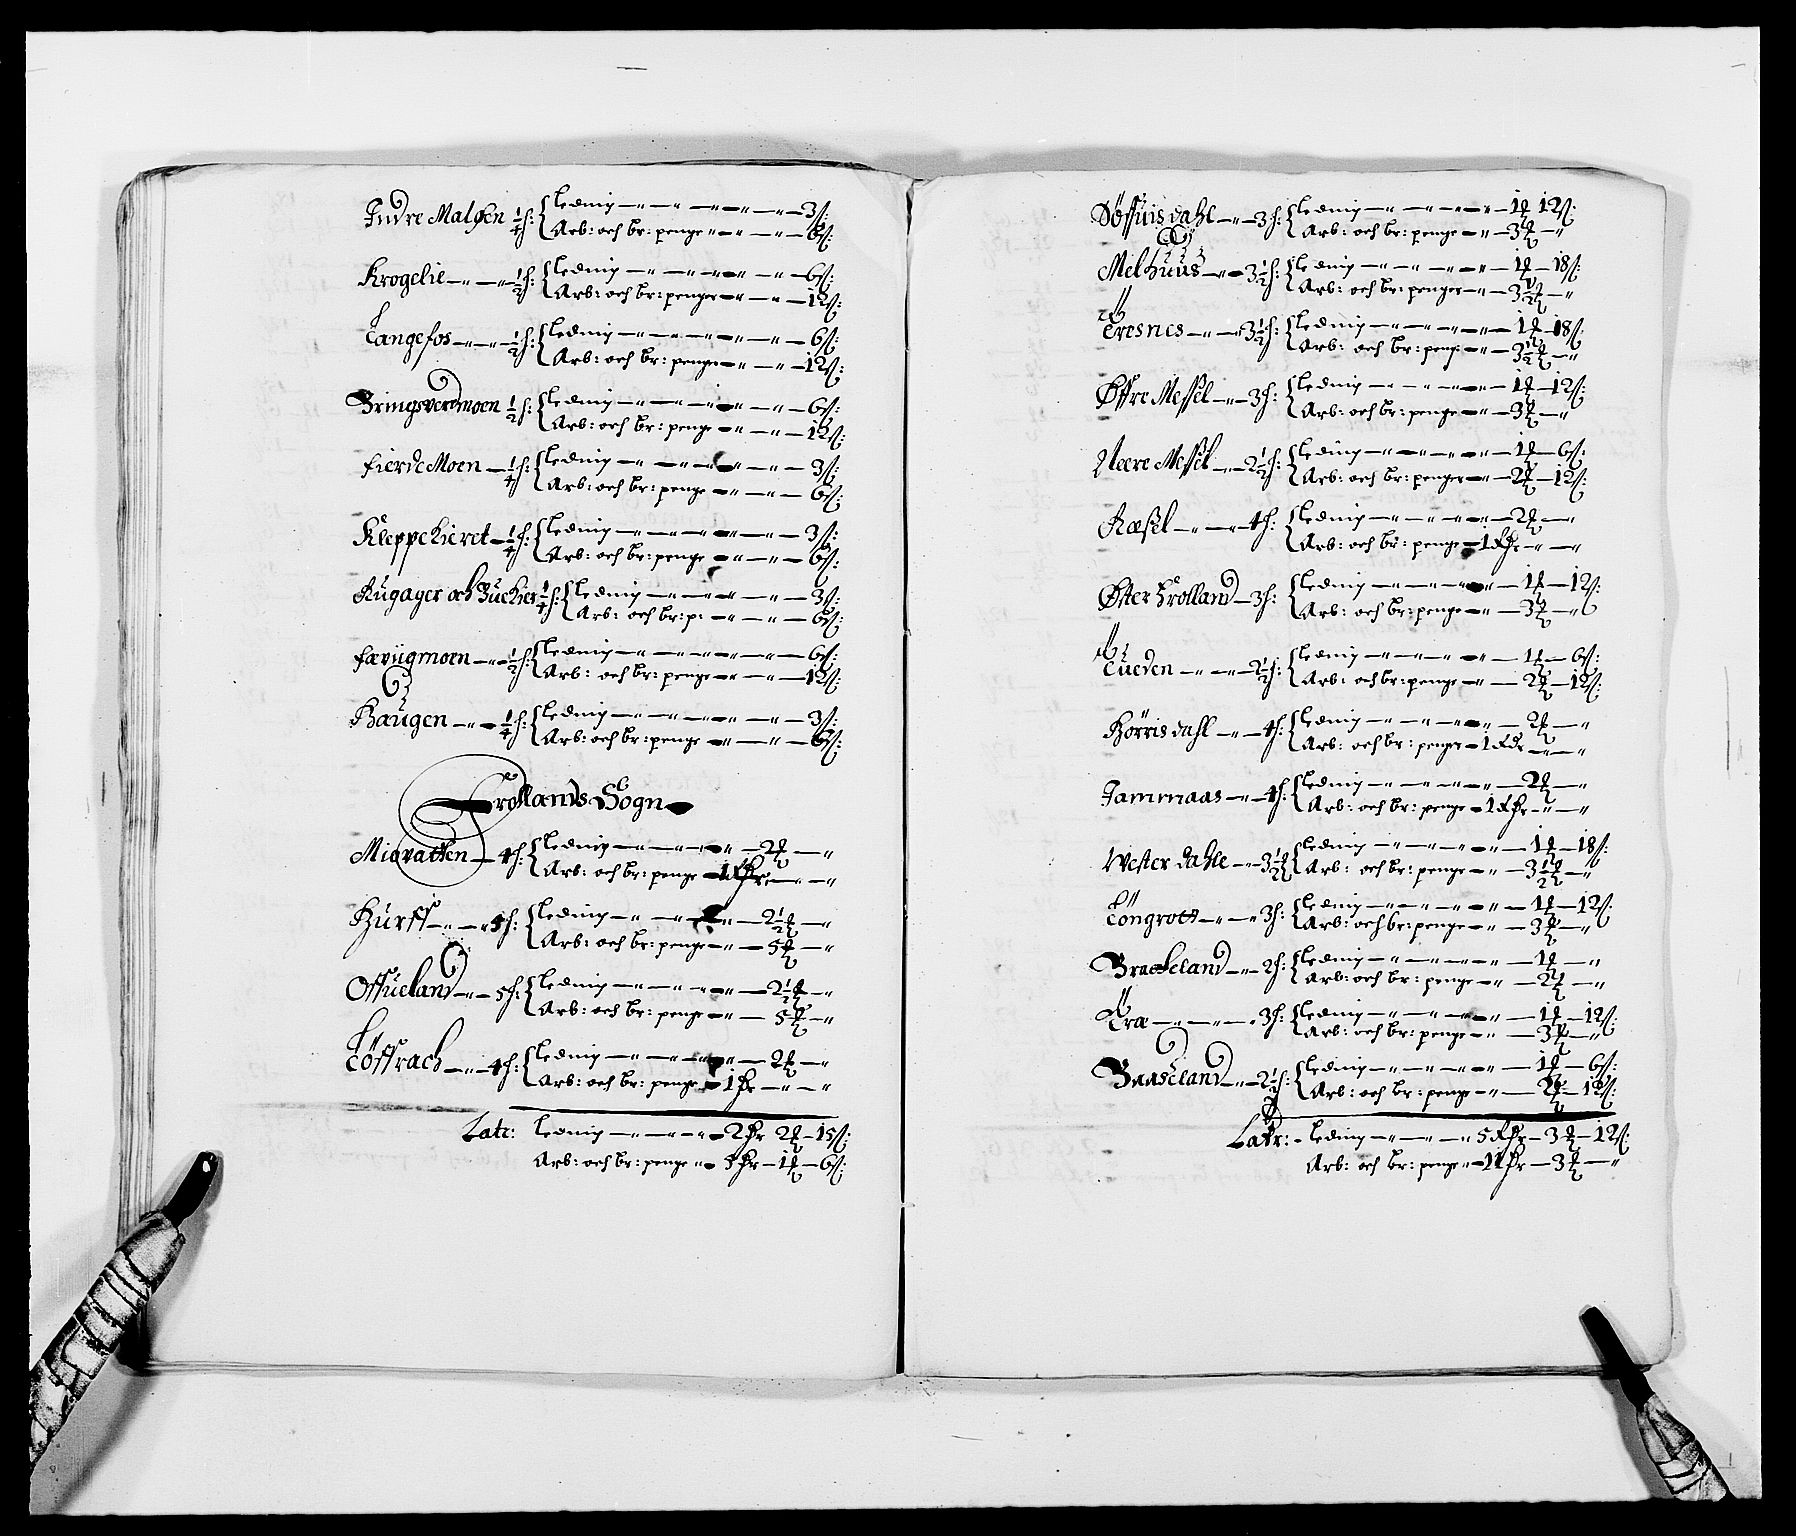 Indre Malgen ¼ h: { Leding — 3 ß:
Arb: och br: penge — 6 ß:
Krogelie — ½ h: { Leding — 6 ß:
Arb: och br: penge — 12 ß:
Langefos — ½ h: { Leding — 6 ß:
Arb: och br: penge — 12 ß:
Bringsverdmoen ½ h: { Leding — 6 ß:
Arb: och br: penge — 12 ß:
fierde Moen — ¼ h: { Leding — 3 ß:
Arb: och br: penge — 6 ß:
Kleppekieret — ¼ h: { Leding — 3 ß:
Arb: och br: penge — 6 ß:
Rugager och ¼ h: { Leding — 3 ß:
Arb: och br: p: — 6 ß:
— ½ h: { Leding — 6 ß:
Arb: och br: penge — 12 ß:
Haugen — ¼ h: { Leding — 3 ß:
Arb: och br: penge — 6 ß:
Frollands Sogn
Miøvatten — 4 h: { Leding — 2 ꝺ —
Arb: och br: penge — 1 —
— 5 h: { Leding — 2½ ꝺ —
Arb: och br: penge — 5 ꝺ —
Offueland — 5 h: { Leding — 2½ ꝺ —
Arb: och br: penge — 5 ꝺ —
Løffrach — 4 h: { Leding — 2 ꝺ —
Arb: och br: penge — 1 —
Late: Leding — 2 2 ꝺ — 15 ß:
Arb: och br: penge — 5 — 1 ꝺ — 6 ß:
Søffuis dahl — 3 h: { Leding — 1 ꝺ 12 ß:
Arb: och br: penge — 3 ꝺ —
Melhuus — 3½ h: { Leding — 1 ꝺ — 18 ß:
Arb: och br: penge — 3½ ꝺ —
Tresnes — 3½ h: { Leding — 1 ꝺ — 18 ß:
Arb: och br: penge — 3½ ꝺ —
Øffre Messel — 3 h: { Leding — 1 ꝺ — 12 ß:
Arb: och br: penge — 3 ꝺ —
Neere Messel — 2½ h: { Leding — 1 ꝺ — 6 ß:
Arb: och br: penge — 2 ꝺ — 12 ß:
— 4 h: { Leding — 2 ꝺ —
Arb: och br: penge — 1 —
Øster Frolland — 3 h: { Leding — 1 ꝺ — 12 ß:
Arb: och br: penge — 3 ꝺ —
Tueden — 2½ h: { Leding — 1 ꝺ — 6 ß:
Arb: och br: penge — 2 ꝺ — 12 ß:
Hørris dahl — 4 h: { Leding — 2 ꝺ —
Arb: och br: penge — 1 —
Jammaas — 4 h: { Leding — 2 ꝺ —
Arb: och br: penge — 1 —
Wester dahle — 3½ { Leding — 1 ꝺ — 18 ß:
Arb: och br: penge — 3½ ꝺ —
Løngrott — 3 h: { Leding — 1 ꝺ — 12 ß:
Arb: och br: penge — 3 ꝺ —
Brackeland — 2 h: { Leding — 1 ꝺ —
Arb: och br: penge — 2 ꝺ —
Træ — 3 h: { Leding — 1 ꝺ — 12 ß:
Arb: och br: penge — 3 ꝺ —
Baaseland — 2½ h: { Leding — 1 ꝺ — 6 ß:
Arb: och br: penge — 2 ꝺ — 12 ß:
Latr: Leding — 5 — 3 ꝺ — 12 ß:
Arb: och br: penge — 11 — 3 ꝺ —